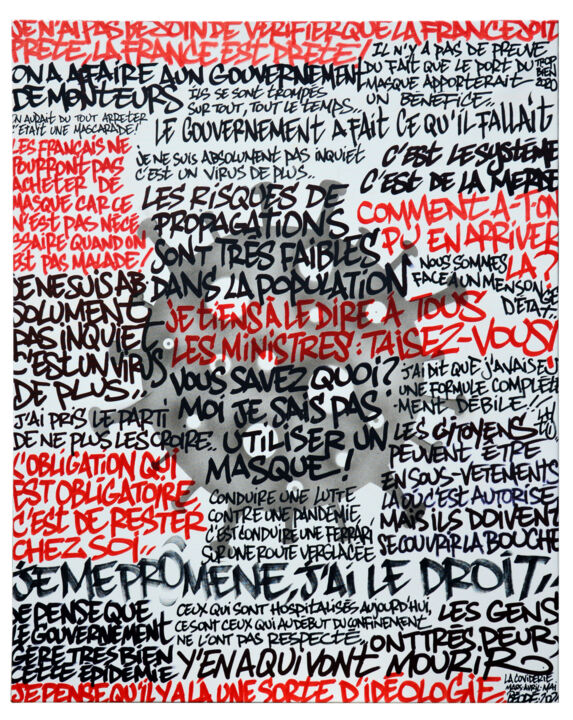 JE N'AI PAS BESOIN DE VERIFIER QUE LA FRANCE SOIT
PRETE LA FRANCE EST PRETE!
IL N'Y A PAS DE PREUVE
DU FAIT QUE LE PORT DU
MASQUE APPORTERAIT
UN BENEFICE..
TROP
BIEN
2020
ON A AFFAIRE A UN GOUVERNEMENT
DE MENTEURS
ILS SE SONT TROMPES
SUR TOUT, TOUT LE TEMPS..
ON AURAIT DU TOUT ARRETER
C'ETAIT UNE MASCARADE!
LE GOUVERNEMENT A FAIT CE QU'IL FALLAIT
LES FRANÇAIS NE
POURRONT PAS
ACHETER DE
MASQUE CAR CE
N'EST PAS NÉCÉ
SSAIRE QUAND ON
EST PAS MALADE!
JE NE SUIS ABSOLUMENT PAS INQUIET
C'EST UN VIRUS DE PLUS..
C'EST LE SYSTÈME
C'EST DE LA MERDE
LES RISQUES DE
PROPAGATIONS
SONT TRÈS FAIBLES
DANS LA POPULATION
COMMENT A-T-ON
PU EN ARRIVER
LA?
NOUS SOMMES
FACE A UN MENSONGE
D'ÉTAT..
JE NE SUIS AB
SOLUMENT
PAS INQUIET
C'EST UN VIRUS
DE PLUS..
JE TIENS À LE DIRE A TOUS
LES MINISTRES: TAISEZ-VOUS!
VOUS SAVEZ QUOI?
MOI JE SAIS PAS
UTILISER UN
MASQUE!
J'AI DIT QUE J'ANAISEU
UNE FORMULE COMPLETE
-MENT DEBILE!!
J'AI PRIS LE PARTI
DE NE PLUS LES CROIRE..
LES CITOYENS
PEUVENT ETRE
EN SOUS-VETEMENTS
LA OÙ C'EST AUTORISE
MAIS ILS DOIVENT
SE COUVRIR LA BOUCHE
L'OBLIGATION QUI
EST OBLIGATOIRE
C'EST DE RESTER
CHEZ SOI..
CONDUIRE UNE LUTTE
CONTRE UNE PANDEMIE,
C'EST CONDUIRE UNE FERRARI
SUR UNE ROUTE VERGLACÉE
JE ME PROMÈNE, J'AI LE DROIT..
JE PENSE QUE
LE GOUVERNEMENT
GERE TRES BIEN
CETTE ÉPIDEMIE
CEUX QUI SONT HOSPITALISÉS AUJOURD'HUI,
CE SONT CEUX QUI AU DEBUT DU CONFINEMENT
NE L'ONT PAS RESPECTE..
LES GENS
ONT TRÈS PEUR
Y'EN A QUI VONT MOURIR
JE PENSE QU'IL Y A LA UNE SORTE D'IDÉOLOGIE..
LA COVIDERIE
MARS-AVRIL-MAI